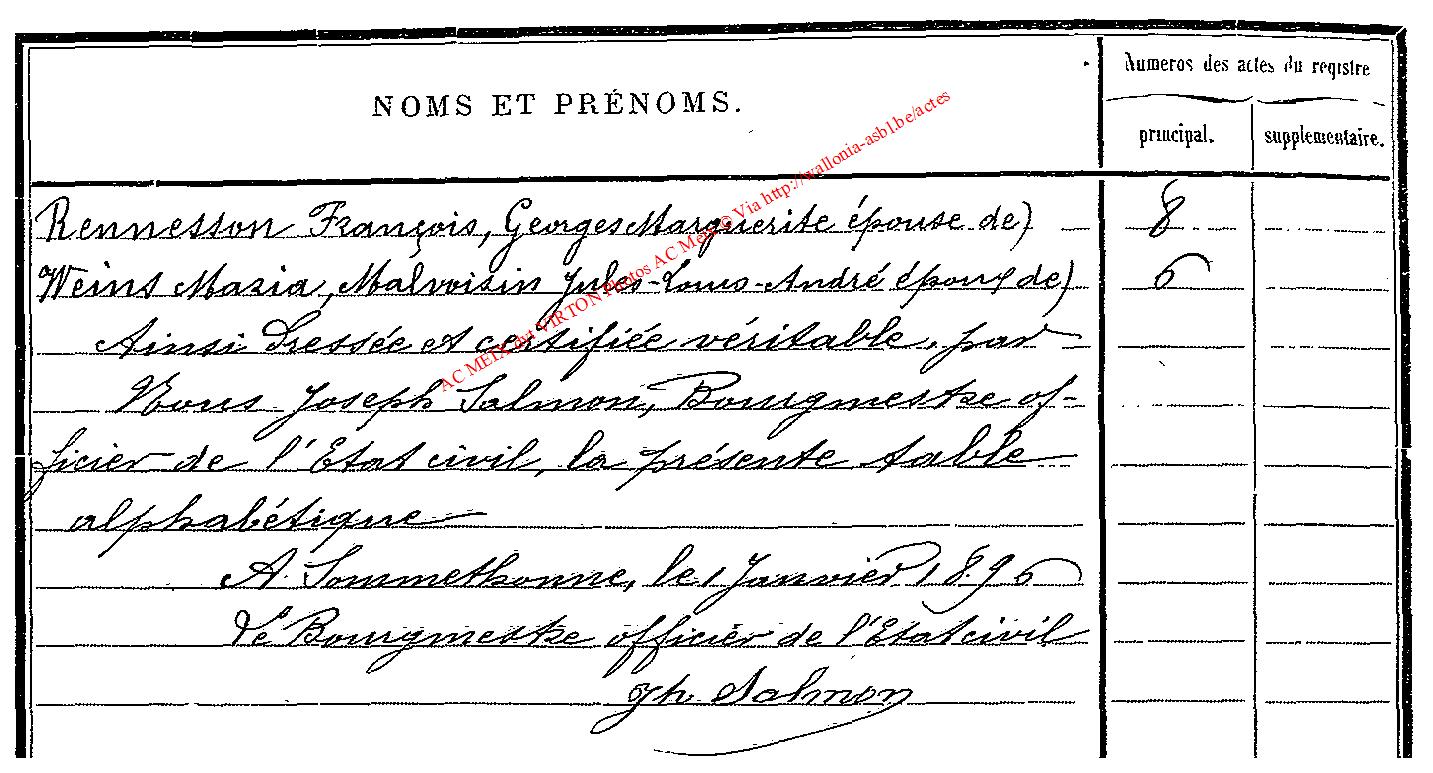 Numeros des actes du registre
NOMS ET PRÉNOMS.
principal. supplementaire.
Rennesson François, Georges Marguerite épouse de) 8
Weins Maria, Malvoisin Jules-Louis-André époux de) 6
Ainsi dressée et certifiée véritable, par
Nous Joseph Salmon, Bourgmestre of-
ficier de l'Etat civil, la présente table
alphabétique
A Sommethonne, le 1 Janvier 1896
Le Bourgmestre officier de l'Etat civil
Jh. Salmon
AC MEIX dvt VIRTON Photos AC Meix © Via http://wallonia-asbl.be/actes